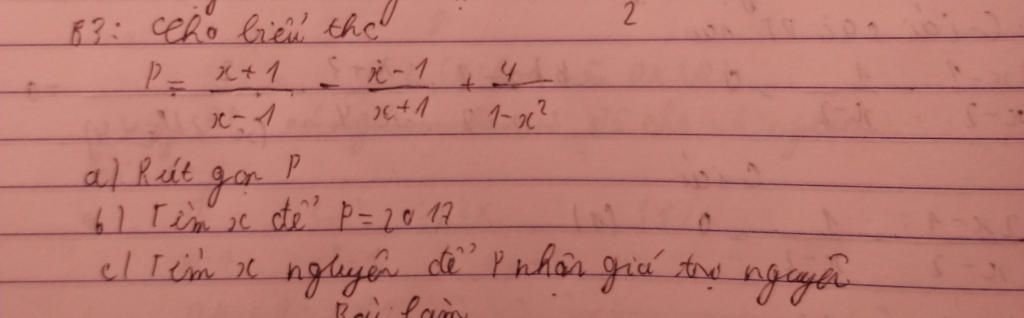 2
B3: Cho biểu thc
P = \frac{x+1}{x-1} - \frac{x-1}{x+1} + \frac{4}{1-x²}
a) Rút gọn P
b) Tìm x để P = 2017
c) Tìm x nguyên để P nhận giá trị nguyên
Bài làm